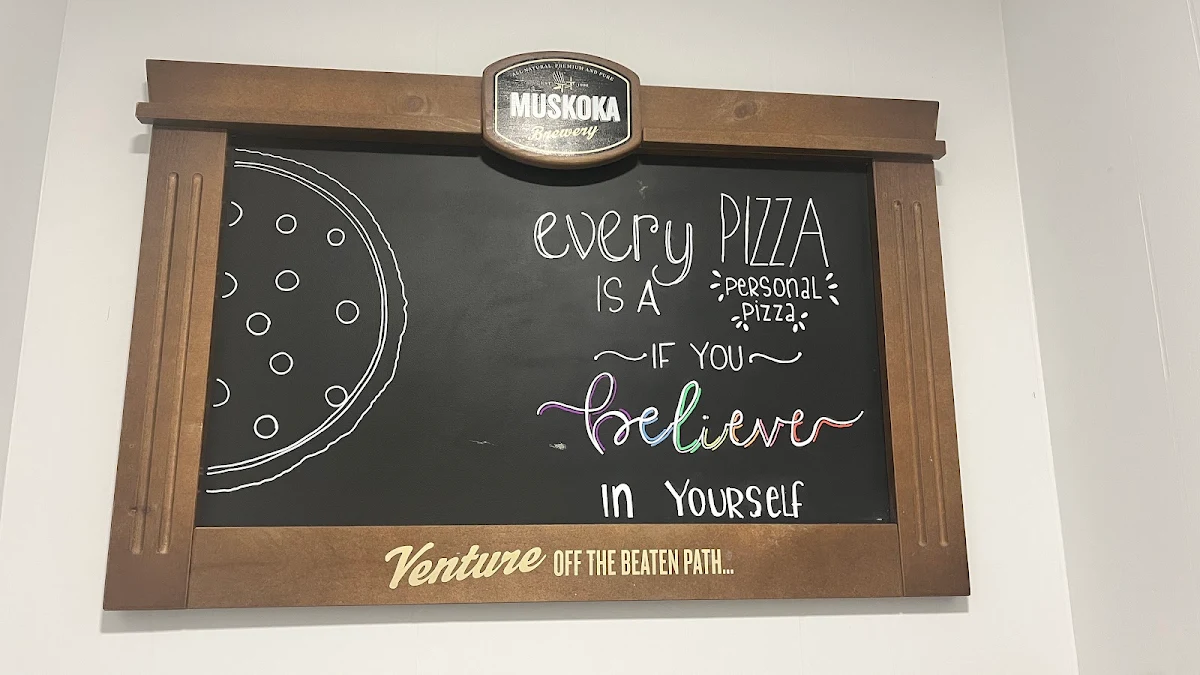 ALL NATURAL, PREMIUM AND PURE
MUSKOKA
Brewery
every PIZZA
IS A personal
pizza
IF YOU
believe
in YOURSELF
Venture OFF THE BEATEN PATH...